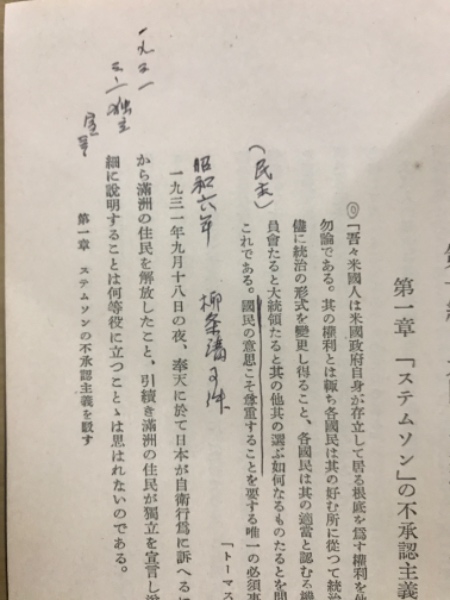 第一章 「ステムソン」の不承認主義
「吾々米國人は米國政府自身が存立して居る根底を爲す權利を他
勿論である。其の權利とは輙ち各國民は其の好む所に從つて統治
儘に統治の形式を變更し得ること、各國民は其の適當と認むる機
員會たると大統領たると其の他其の選ぶ如何なるものたるとを問
これである。國民の意思こそ尊重することを要する唯一の必須事
(民主)
「トーマス
柳条溝事件
昭和六年
一九三一年九月十八日の夜、奉天に於て日本が自衛行爲に訴へるに
から滿洲の住民を解放したこと、引續き滿洲の住民が獨立を宣言し
細に說明することは何等役に立つことゝは思はれないのである。
第一章 ステムソンの不承認主義を駁す